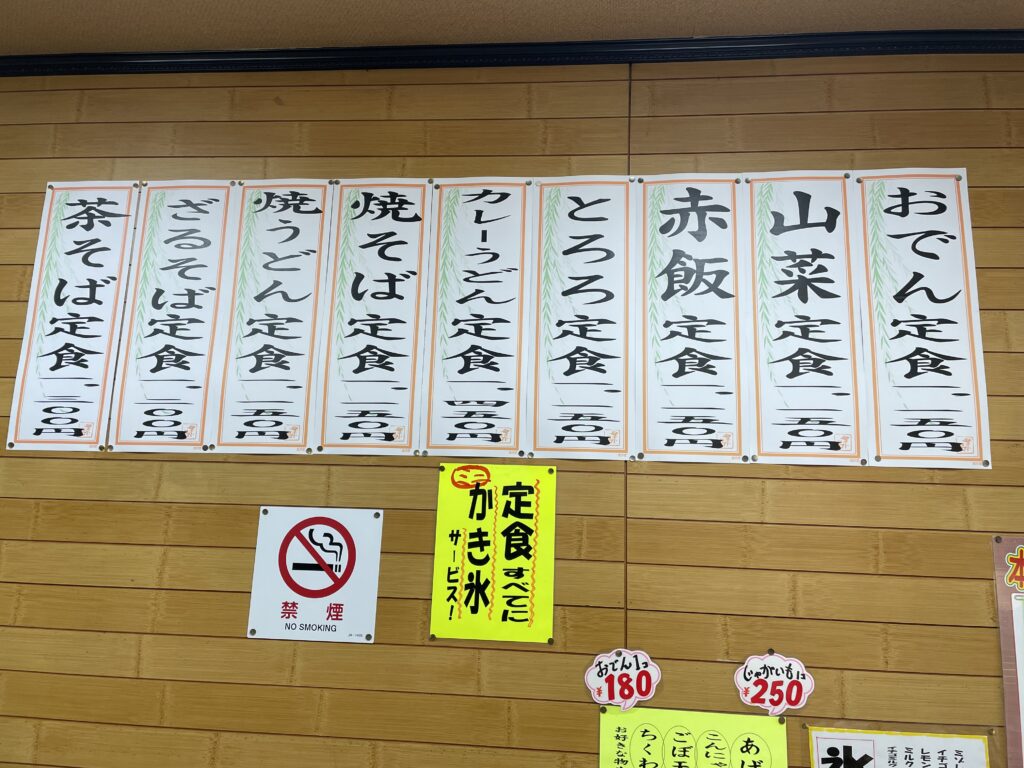 おでん定食一、二五〇円
山菜定食一、二五〇円
赤飯定食一、二五〇円
とろろ定食一、二五〇円
カレーうどん定食一、四五〇円
焼そば定食一、二五〇円
焼うどん定食一、二五〇円
ざるそば定食一、二〇〇円
茶そば定食一、三〇〇円
定食すべてに
ミニ
かき氷
サービス!
禁煙
NO SMOKING
おでん1コ
¥180
じゃがいもは
¥250
あげ
こんにゃ
ごぼ
ちくわ
お好きな物
氷
ミゾ
イチゴ
レモン
ミルク